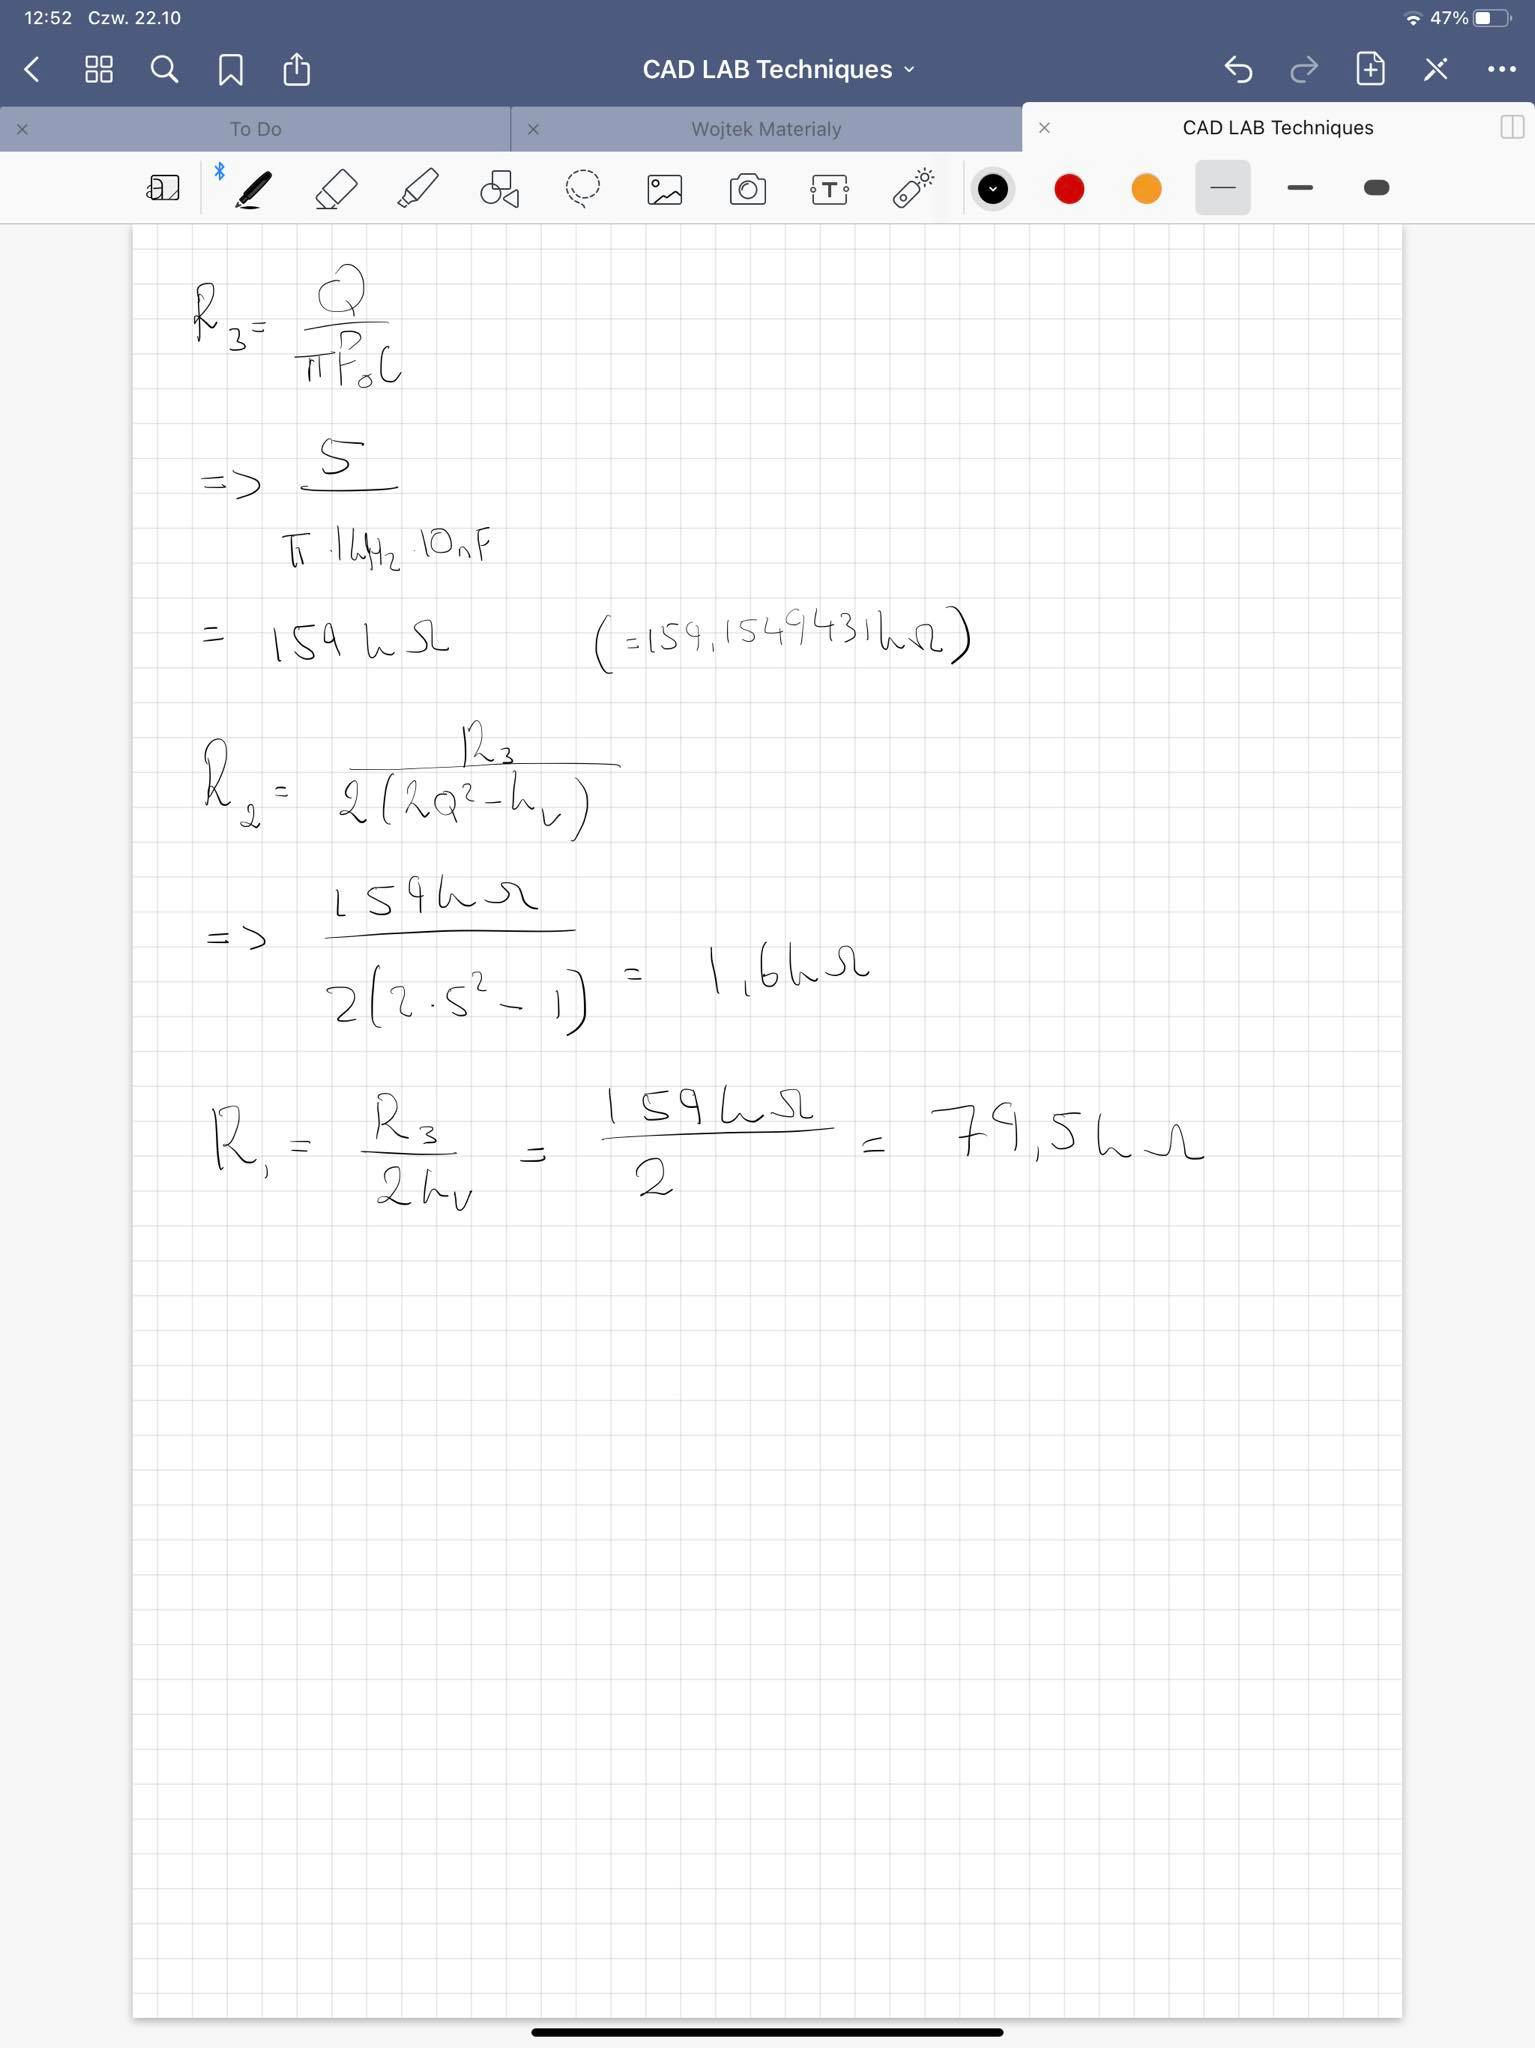 12:52 Czw. 22.10 47%
CAD LAB Techniques
To Do Wojtek Materialy CAD LAB Techniques
R₃ = Q / πF₀C
=> 5 / π · 1kHz · 10nF
= 159 kΩ (=159,1549431kΩ)
R₂ = R₃ / 2(2Q² - kᵥ)
=> 159kΩ / 2(2·5² - 1) = 1,6kΩ
R₁ = R₃ / 2kᵥ = 159kΩ / 2 = 79,5kΩ